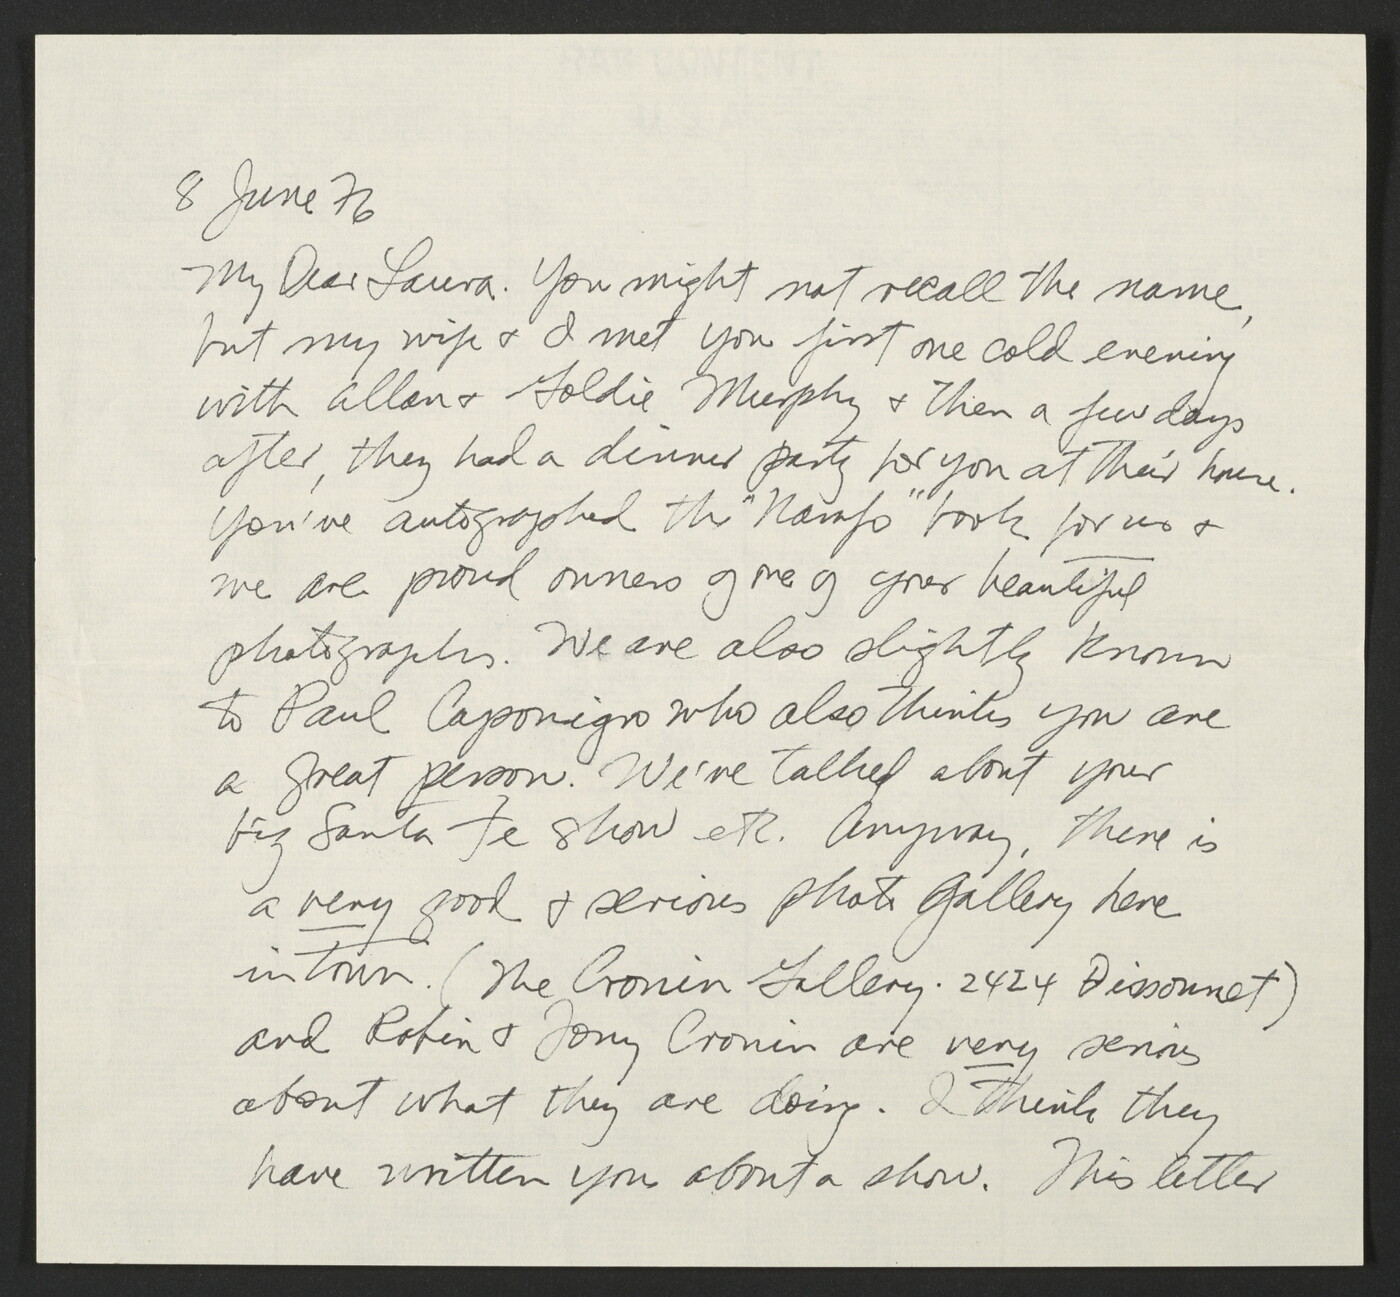 8 June 76
My Dear Laura. You might not recall the name,
but my wife & I met you first one cold evening
with Allan & Goldie Murphy & then a few days
after, they had a dinner party for you at their house.
You've autographed the "Navajo" book for us &
we are proud owners of one of your beautiful
photographs. We are also slightly known
to Paul Caponigro who also thinks you are
a great person. We've talked about your
big Santa Fe show etc. Anyway, there is
a very good & serious photo gallery here
in town. (The Cronin Gallery. 2424 Bissonnet)
and Robin & Tony Cronin are very serious
about what they are doing. I think they
have written you about a show. This letter